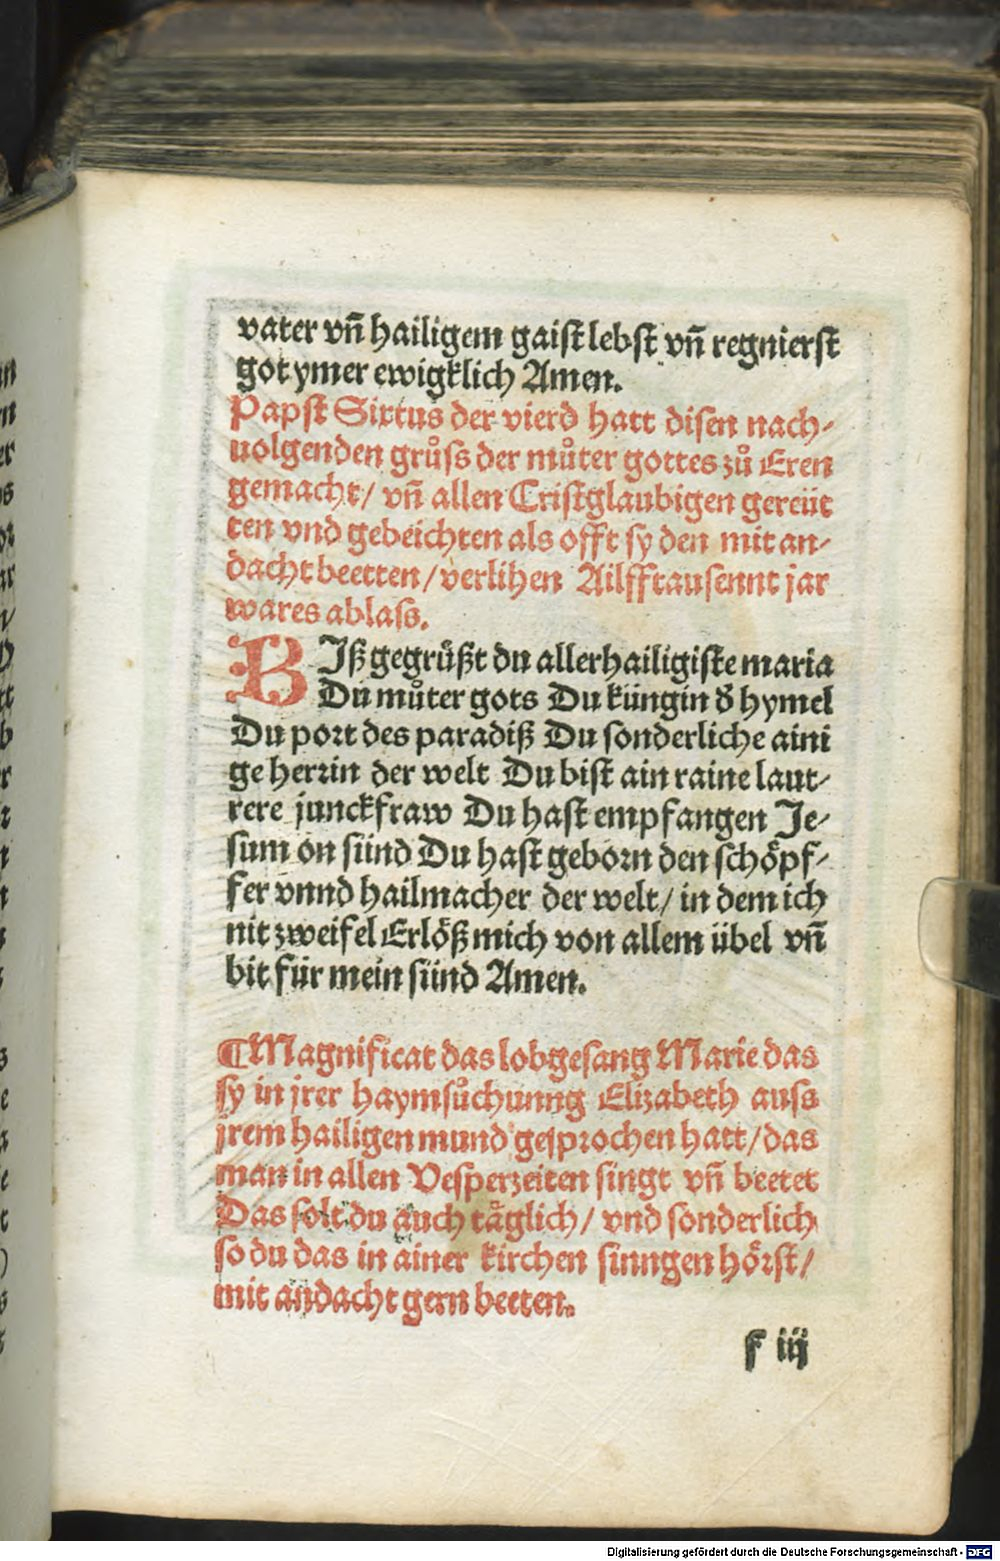 vater vn̄ hailigem gaist lebst vn̄ regnierst
got ymer ewigklich Amen.
Papst Sixtus der vierd hatt disen nach⸗
uolgenden grůss der můter gottes zů Eren
gemacht/ vn̄ allen Cristglaubigen gereüt
ten vnd gebeichten als offt sy den mit an⸗
dacht beetten/ verlihen Ailfftausennt jar
wares ablass.
BJß gegrůßt du allerhailigiste maria
Du můter gots Du küngin d̕ hymel
Du port des paradiß Du sonderliche aini
ge herrin der welt Du bist ain raine laut⸗
rere junckfraw Du hast empfangen Je⸗
sum on sünd Du hast geborn den schöpf⸗
fer vnnd hailmacher der welt/ in dem ich
nit zweifel Erlöß mich von allem übel vn̄
bit für mein sünd Amen.
¶Magnificat das lobgesang Marie das
sy in jrer haymsůchunng Elizabeth auss
jrem hailigen mund gesprochen hatt/ das
man in allen Vesperzeiten singt vn̄ beetet
Das solt du auch täglich/ vnd sonderlich
so du das in ainer kirchen sinngen hörst/
mit andacht gern beeten.
f iij
Digitalisierung gefördert durch die Deutsche Forschungsgemeinschaft - DFG